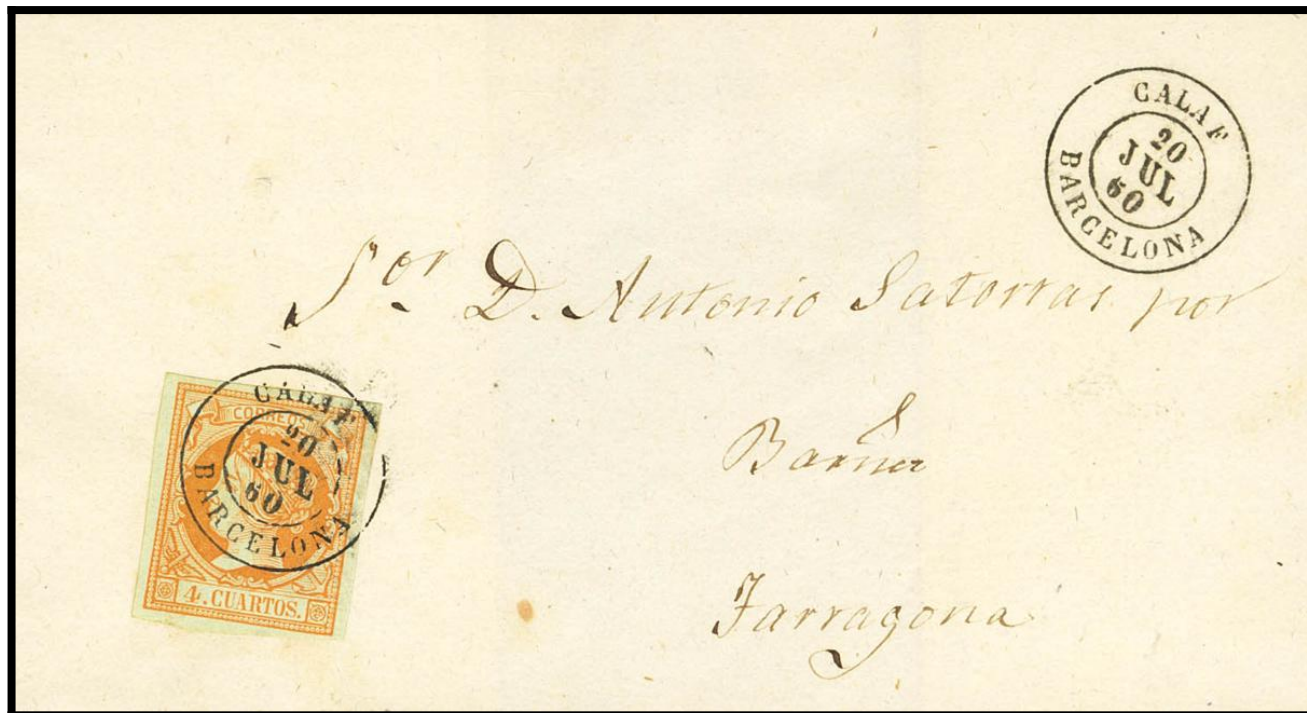 CALAF
20
JUL
60
BARCELONA
Sor. D. Antonio Satorras por
Tarragona
CALAF
CORREO
20
JUL
60
BARCELONA
4. CUARTOS.